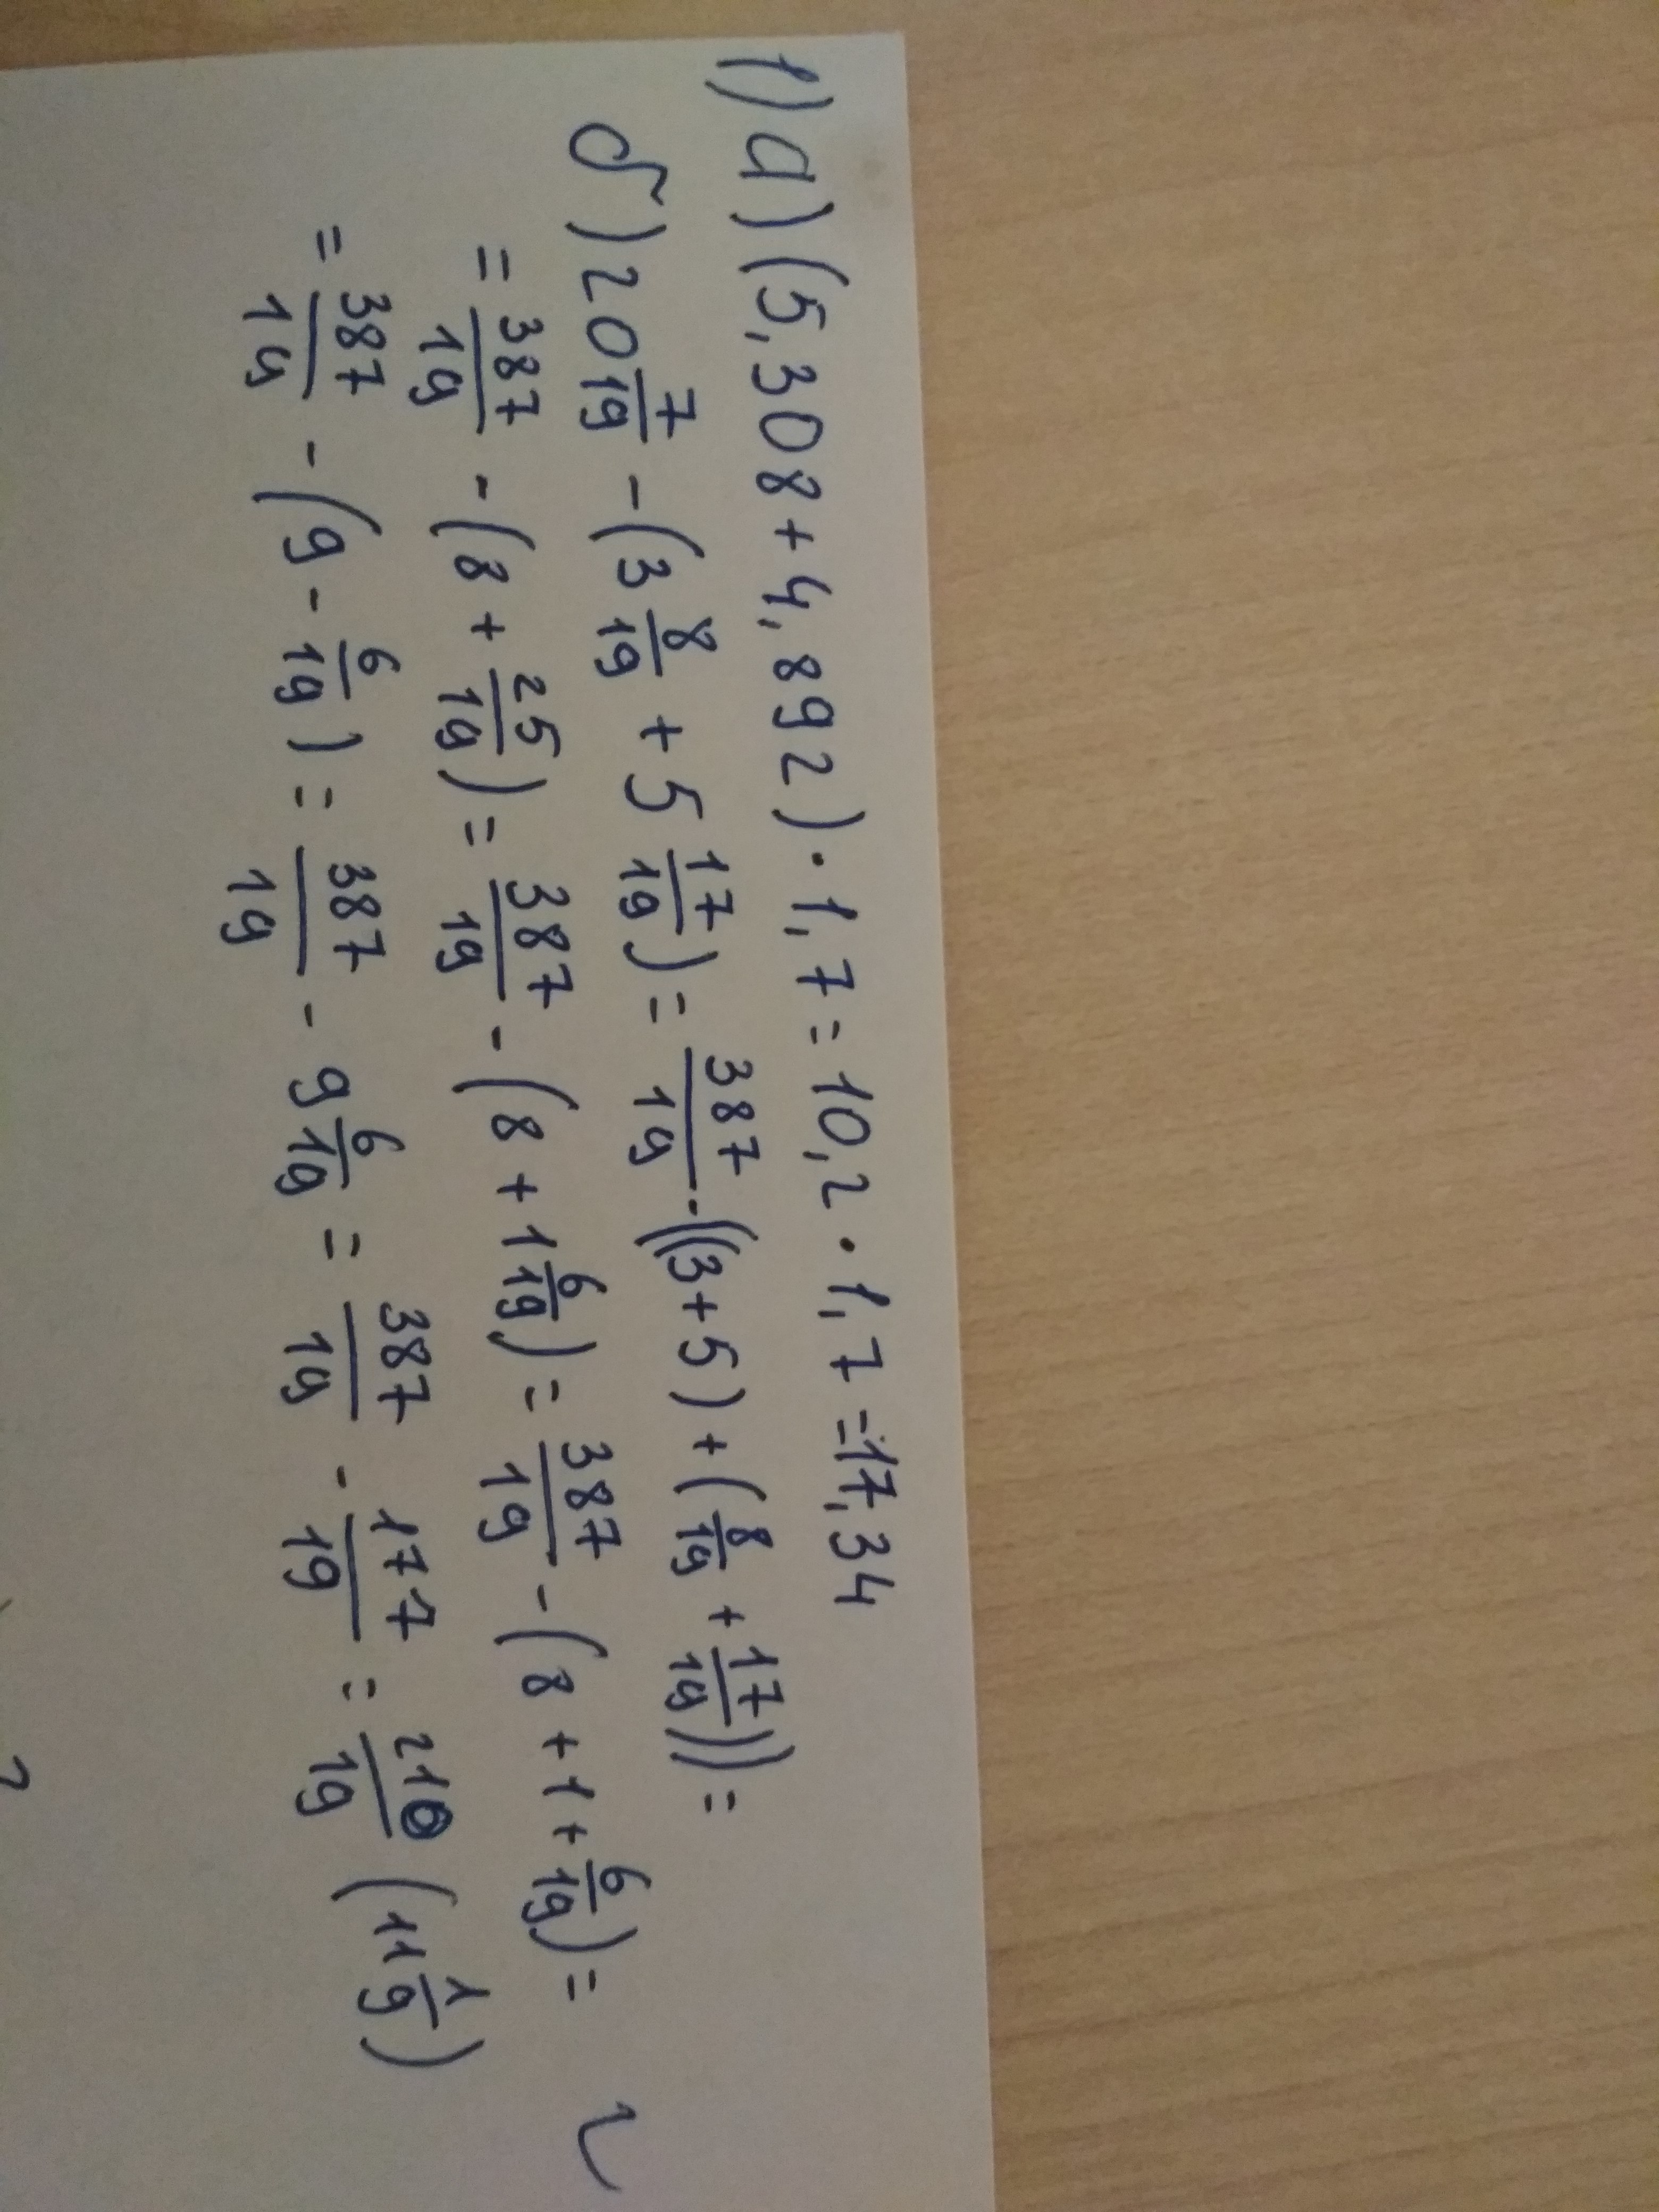 1) а) (5,308 + 4,892) · 1,7 = 10,2 · 1,7 = 17,34
б) 20 7/19 - (3 8/19 + 5 17/19) = 387/19 - ((3+5) + (8/19 + 17/19)) =
= 387/19 - (8 + 25/19) = 387/19 - (8 + 1 6/19) = 387/19 - (8 + 1 + 6/19) =
= 387/19 - (9 - 6/19) = 387/19 - 9 6/19 = 387/19 - 177/19 = 210/19 (11 1/9)